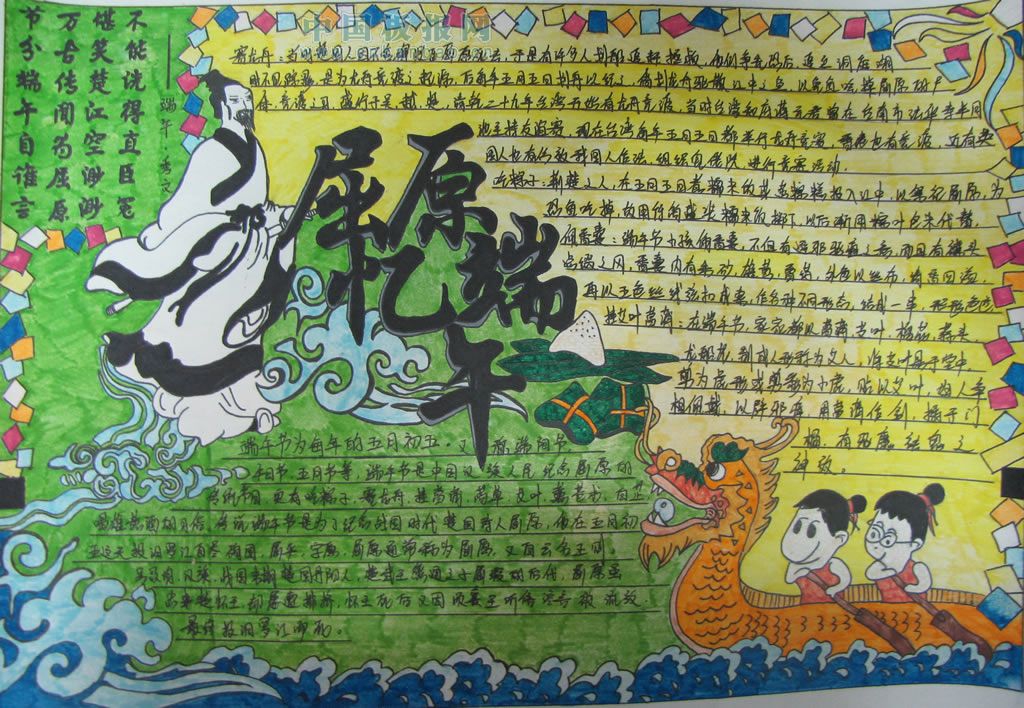 中国板报网
节分端午自谁言
万古传闻为屈原
堪笑楚江空渺渺
不能洗得直臣冤
屈原
忆端
午
赛龙舟：当时楚国人因不舍贤臣屈原死去，于是有许多人划船追赶拯救，他们争先恐后，追至洞庭湖
时不见踪迹，是为龙舟竞渡之起源，后每年五月五日划龙舟以纪之，借划龙舟驱散江中之鱼，以免鱼吃掉屈原的尸
体，竞渡之习，盛行于吴、越、楚。
人也有仿效我国人作法，组织鱼佬队，进行竞赛活动。
吃粽子：荆楚之人，在五月五日煮糯米饭或蒸粽糕投入江中，以祭祀屈原，为
恐鱼吃掉，故用竹筒盛装糯米饭掷下，以后渐用粽叶包米代替。
佩香囊：端午节小孩佩香囊，不但有避邪驱瘟之意，而且有襟头
点缀之风，香囊内有朱砂、雄黄、香药，外包以丝布，清香四溢，
再以五色丝线弦扣成索，作各种不同形状，结成一串，形形色色
悬艾叶菖蒲：在端午节，家家都以菖蒲、艾叶、榴花、蒜头、
龙船花，制成人形称为艾人，将艾叶悬于堂中，
剪为虎形或剪彩为小虎，贴以艾叶，妇人争
相佩戴，以僻邪驱瘴。用菖蒲作剑，插于门
楣，有驱魔祛鬼之
神效。
端午节为每年的五月初五，又称端阳节、
午日节、五月节等，端午节是中国汉族人民纪念屈原的
传统节日，更有吃粽子，赛龙舟，挂菖蒲、蒿草、艾叶，薰苍术、白芷，
喝雄黄酒的习俗。传说端午节是为了纪念战国时代楚国诗人屈原，他在五月初
五这天投汨罗江自尽殉国。屈平，字原，通常称为屈原，又自云名正则，
号灵均，汉族，战国末期楚国丹阳人，楚武王熊通之子屈瑕的后代。屈原虽
忠事楚怀王，却屡遭排挤，怀王死后又因顷襄王听信谗言而被流放，
最终投汨罗江而死。